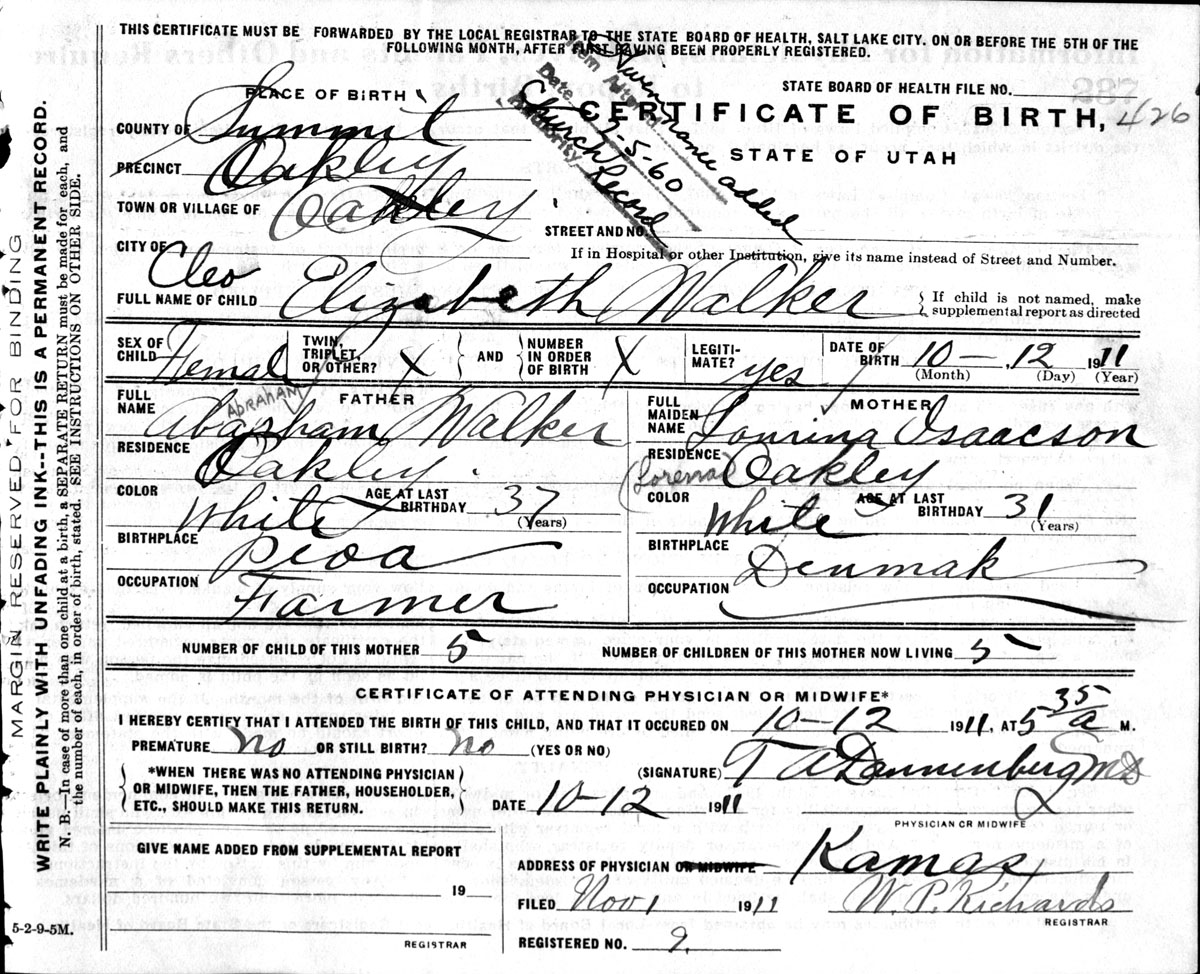 THIS CERTIFICATE MUST BE FORWARDED BY THE LOCAL REGISTRAR TO THE STATE BOARD OF HEALTH, SALT LAKE CITY, ON OR BEFORE THE 5TH OF THE
FOLLOWING MONTH, AFTER FIRST HAVING BEEN PROPERLY REGISTERED.
STATE BOARD OF HEALTH FILE NO.
CERTIFICATE OF BIRTH, 426
STATE OF UTAH
Item Given name added
Date 7-5-60
Authority Church Record
PLACE OF BIRTH
COUNTY OF Summit
PRECINCT Oakley
TOWN OR VILLAGE OF Oakley
STREET AND NO.
CITY OF
If in Hospital or other Institution, give its name instead of Street and Number.
Cleo
FULL NAME OF CHILD Elizabeth Walker
{ If child is not named, make
supplemental report as directed
SEX OF CHILD Female TWIN, TRIPLET, OR OTHER? X } AND { NUMBER IN ORDER OF BIRTH X LEGITI-MATE? yes DATE OF BIRTH 10 - , 12 1911
(Month) (Day) (Year)
FATHER
FULL NAME Abarham Walker
ABRAHAM
RESIDENCE Oakley
COLOR White AGE AT LAST BIRTHDAY 37
(Years)
BIRTHPLACE Peoa
OCCUPATION Farmer
MOTHER
FULL MAIDEN NAME Lourina Isaacson
RESIDENCE Oakley
COLOR White AGE AT LAST BIRTHDAY 31
(Years)
BIRTHPLACE Denmak
OCCUPATION
NUMBER OF CHILD OF THIS MOTHER 5 NUMBER OF CHILDREN OF THIS MOTHER NOW LIVING 5
CERTIFICATE OF ATTENDING PHYSICIAN OR MIDWIFE*
I HEREBY CERTIFY THAT I ATTENDED THE BIRTH OF THIS CHILD, AND THAT IT OCCURED ON 10-12 1911, AT 5 35 a M.
PREMATURE No OR STILL BIRTH? No (YES OR NO)
{ *WHEN THERE WAS NO ATTENDING PHYSICIAN
OR MIDWIFE, THEN THE FATHER, HOUSEHOLDER,
ETC., SHOULD MAKE THIS RETURN. }
(SIGNATURE) T A Dannenberg MD
DATE 10-12 1911
PHYSICIAN OR MIDWIFE
GIVE NAME ADDED FROM SUPPLEMENTAL REPORT
19
REGISTRAR
ADDRESS OF PHYSICIAN OR MIDWIFE Kamas
FILED Nov 1 1911 W. P. Richards
REGISTRAR
REGISTERED NO. 9
5-2-9-5M.
MARGIN RESERVED FOR BINDING
WRITE PLAINLY WITH UNFADING INK--THIS IS A PERMANENT RECORD.
N. B.—In case of more than one child at a birth, a SEPARATE RETURN must be made for each, and
the number of each, in order of birth, stated. SEE INSTRUCTIONS ON OTHER SIDE.